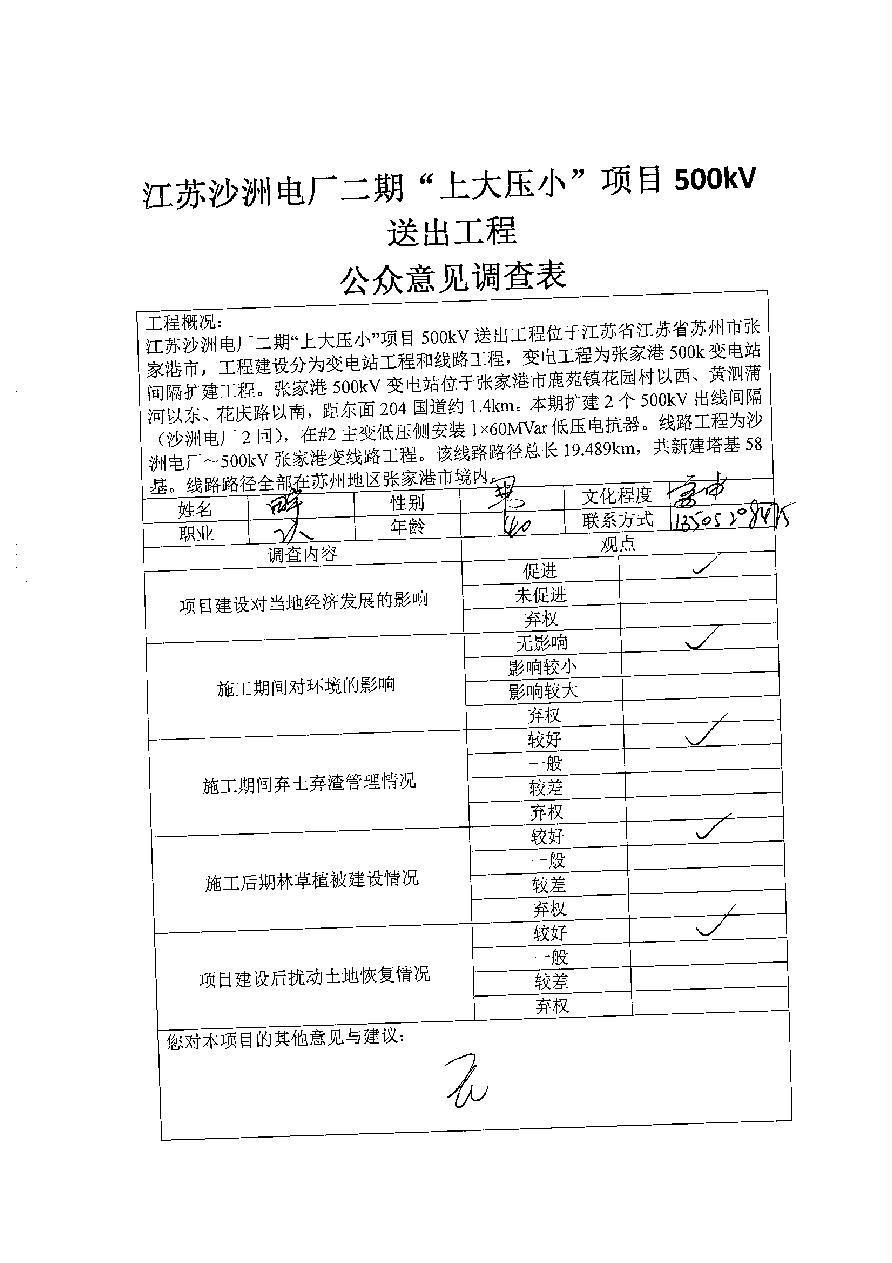 江苏沙洲电厂二期“上大压小”项目500kV
送出工程
公众意见调查表
工程概况：
江苏沙洲电厂二期“上大压小”项目500kV送出工程位于江苏省江苏省苏州市张
家港市，工程建设分为变电站工程和线路工程，变电工程为张家港500k变电站
间隔扩建工程。张家港500kV变电站位于张家港市鹿苑镇花园村以西、黄泗蒲
河以东、花庆路以南，距东面204国道约1.4km。本期扩建2个500kV出线间隔
（沙洲电厂2间），在#2主变低压侧安装1×60MVar低压电抗器。线路工程为沙
洲电厂～500kV张家港变线路工程。该线路路径总长19.489km，共新建塔基58
基。线路路径全部在苏州地区张家港市境内。
姓名 性别 男 文化程度 高中
职业 年龄 40 联系方式
调查内容 观点
项目建设对当地经济发展的影响
促进 ✓
未促进
弃权
施工期间对环境的影响
无影响 ✓
影响较小
影响较大
弃权
施工期间弃土弃渣管理情况
较好 ✓
一般
较差
弃权
施工后期林草植被建设情况
较好 ✓
一般
较差
弃权
项目建设后扰动土地恢复情况
较好 ✓
一般
较差
弃权
您对本项目的其他意见与建议：
无